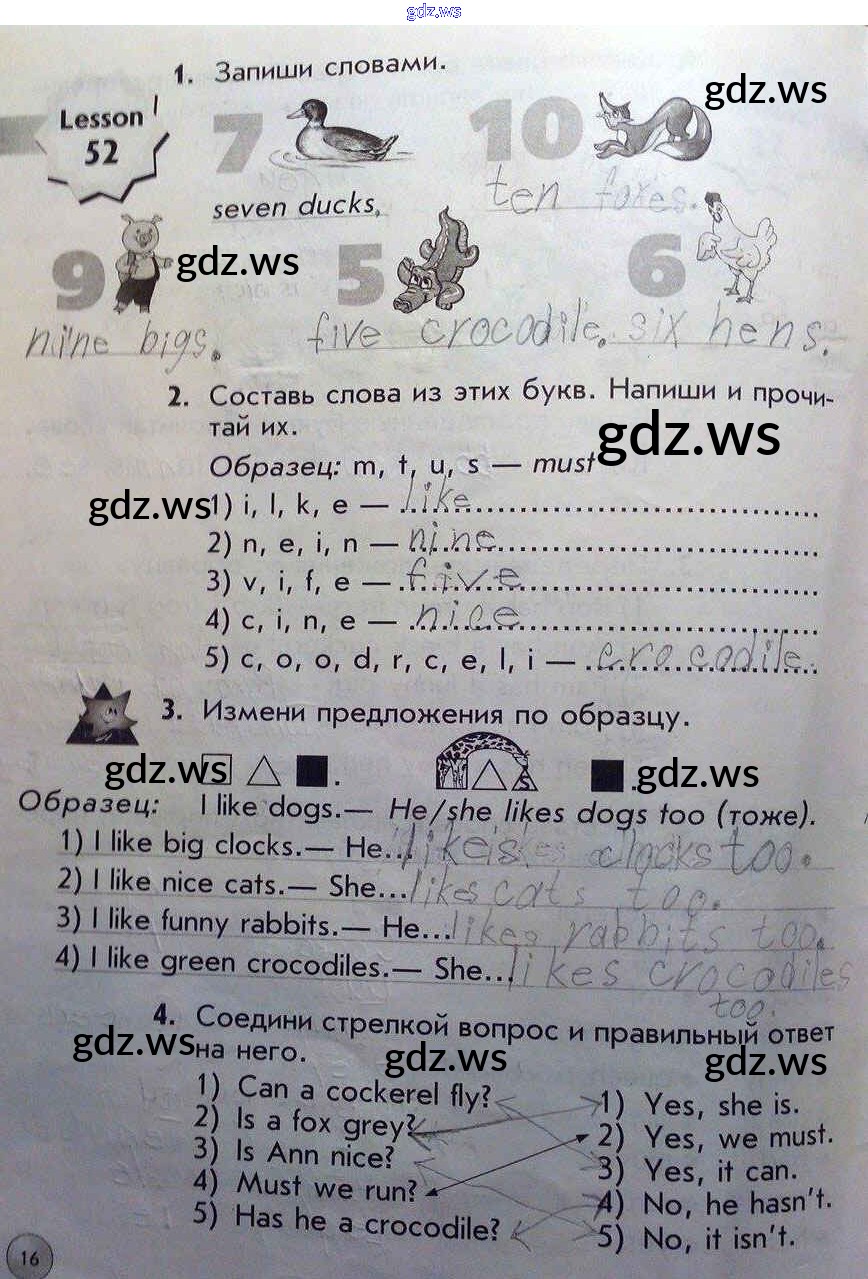 gdz.ws
1. Запиши словами.
gdz.ws
Lesson 52
7
10
seven ducks,
ten foxes.
gdz.ws
9
5
6
nine bigs.
five crocodile.
six hens.
2. Составь слова из этих букв. Напиши и прочи-
тай их.
gdz.ws
Образец: m, t, u, s — must
gdz.ws
1) i, l, k, e — like
2) n, e, i, n — nine
3) v, i, f, e — five
4) c, i, n, e — nice
5) c, o, o, d, r, c, e, l, i — crocodile
3. Измени предложения по образцу.
gdz.ws
gdz.ws
Образец: I like dogs.— He/she likes dogs too (тоже).
1) I like big clocks.— He... likes clocks too.
2) I like nice cats.— She... likes cats too.
3) I like funny rabbits.— He... likes rabbits too.
4) I like green crocodiles.— She... likes crocodiles
too.
4. Соедини стрелкой вопрос и правильный ответ
на него.
gdz.ws
gdz.ws
gdz.ws
1) Can a cockerel fly?
1) Yes, she is.
2) Is a fox grey?
2) Yes, we must.
3) Is Ann nice?
3) Yes, it can.
4) Must we run?
4) No, he hasn't.
5) Has he a crocodile?
5) No, it isn't.
16